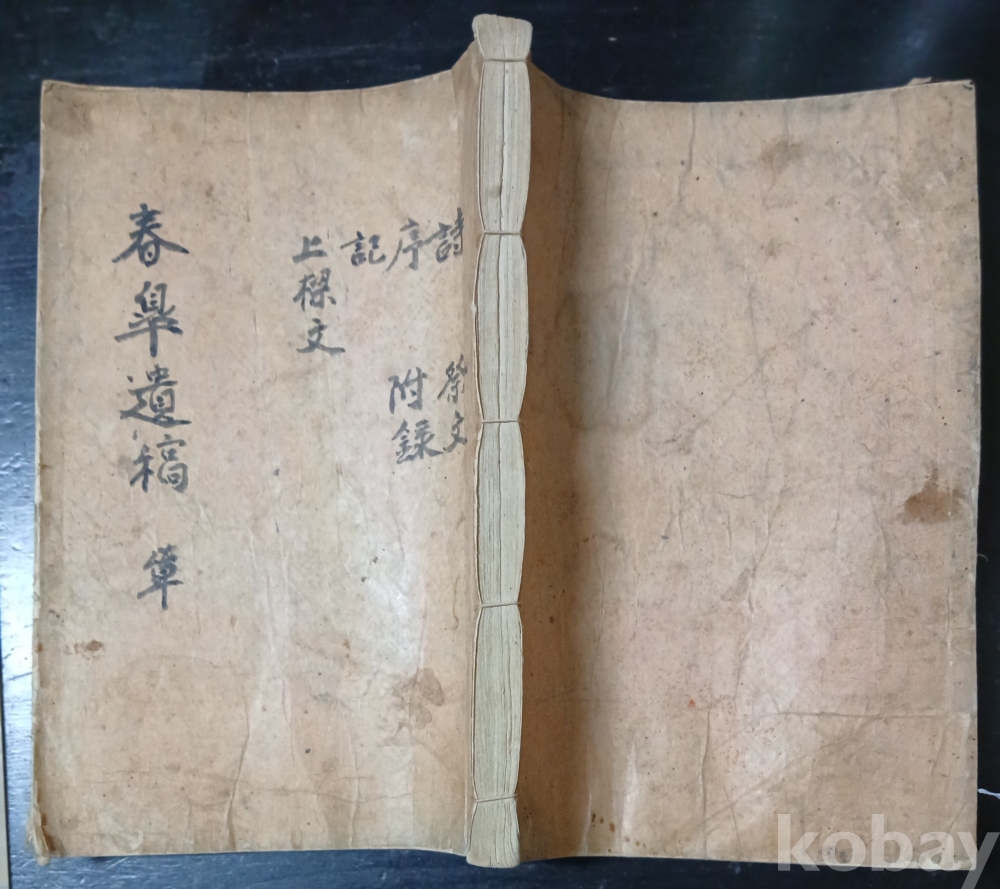 春皐遺稿 單
詩 祭文
序 附錄
記
上樑文
kobay